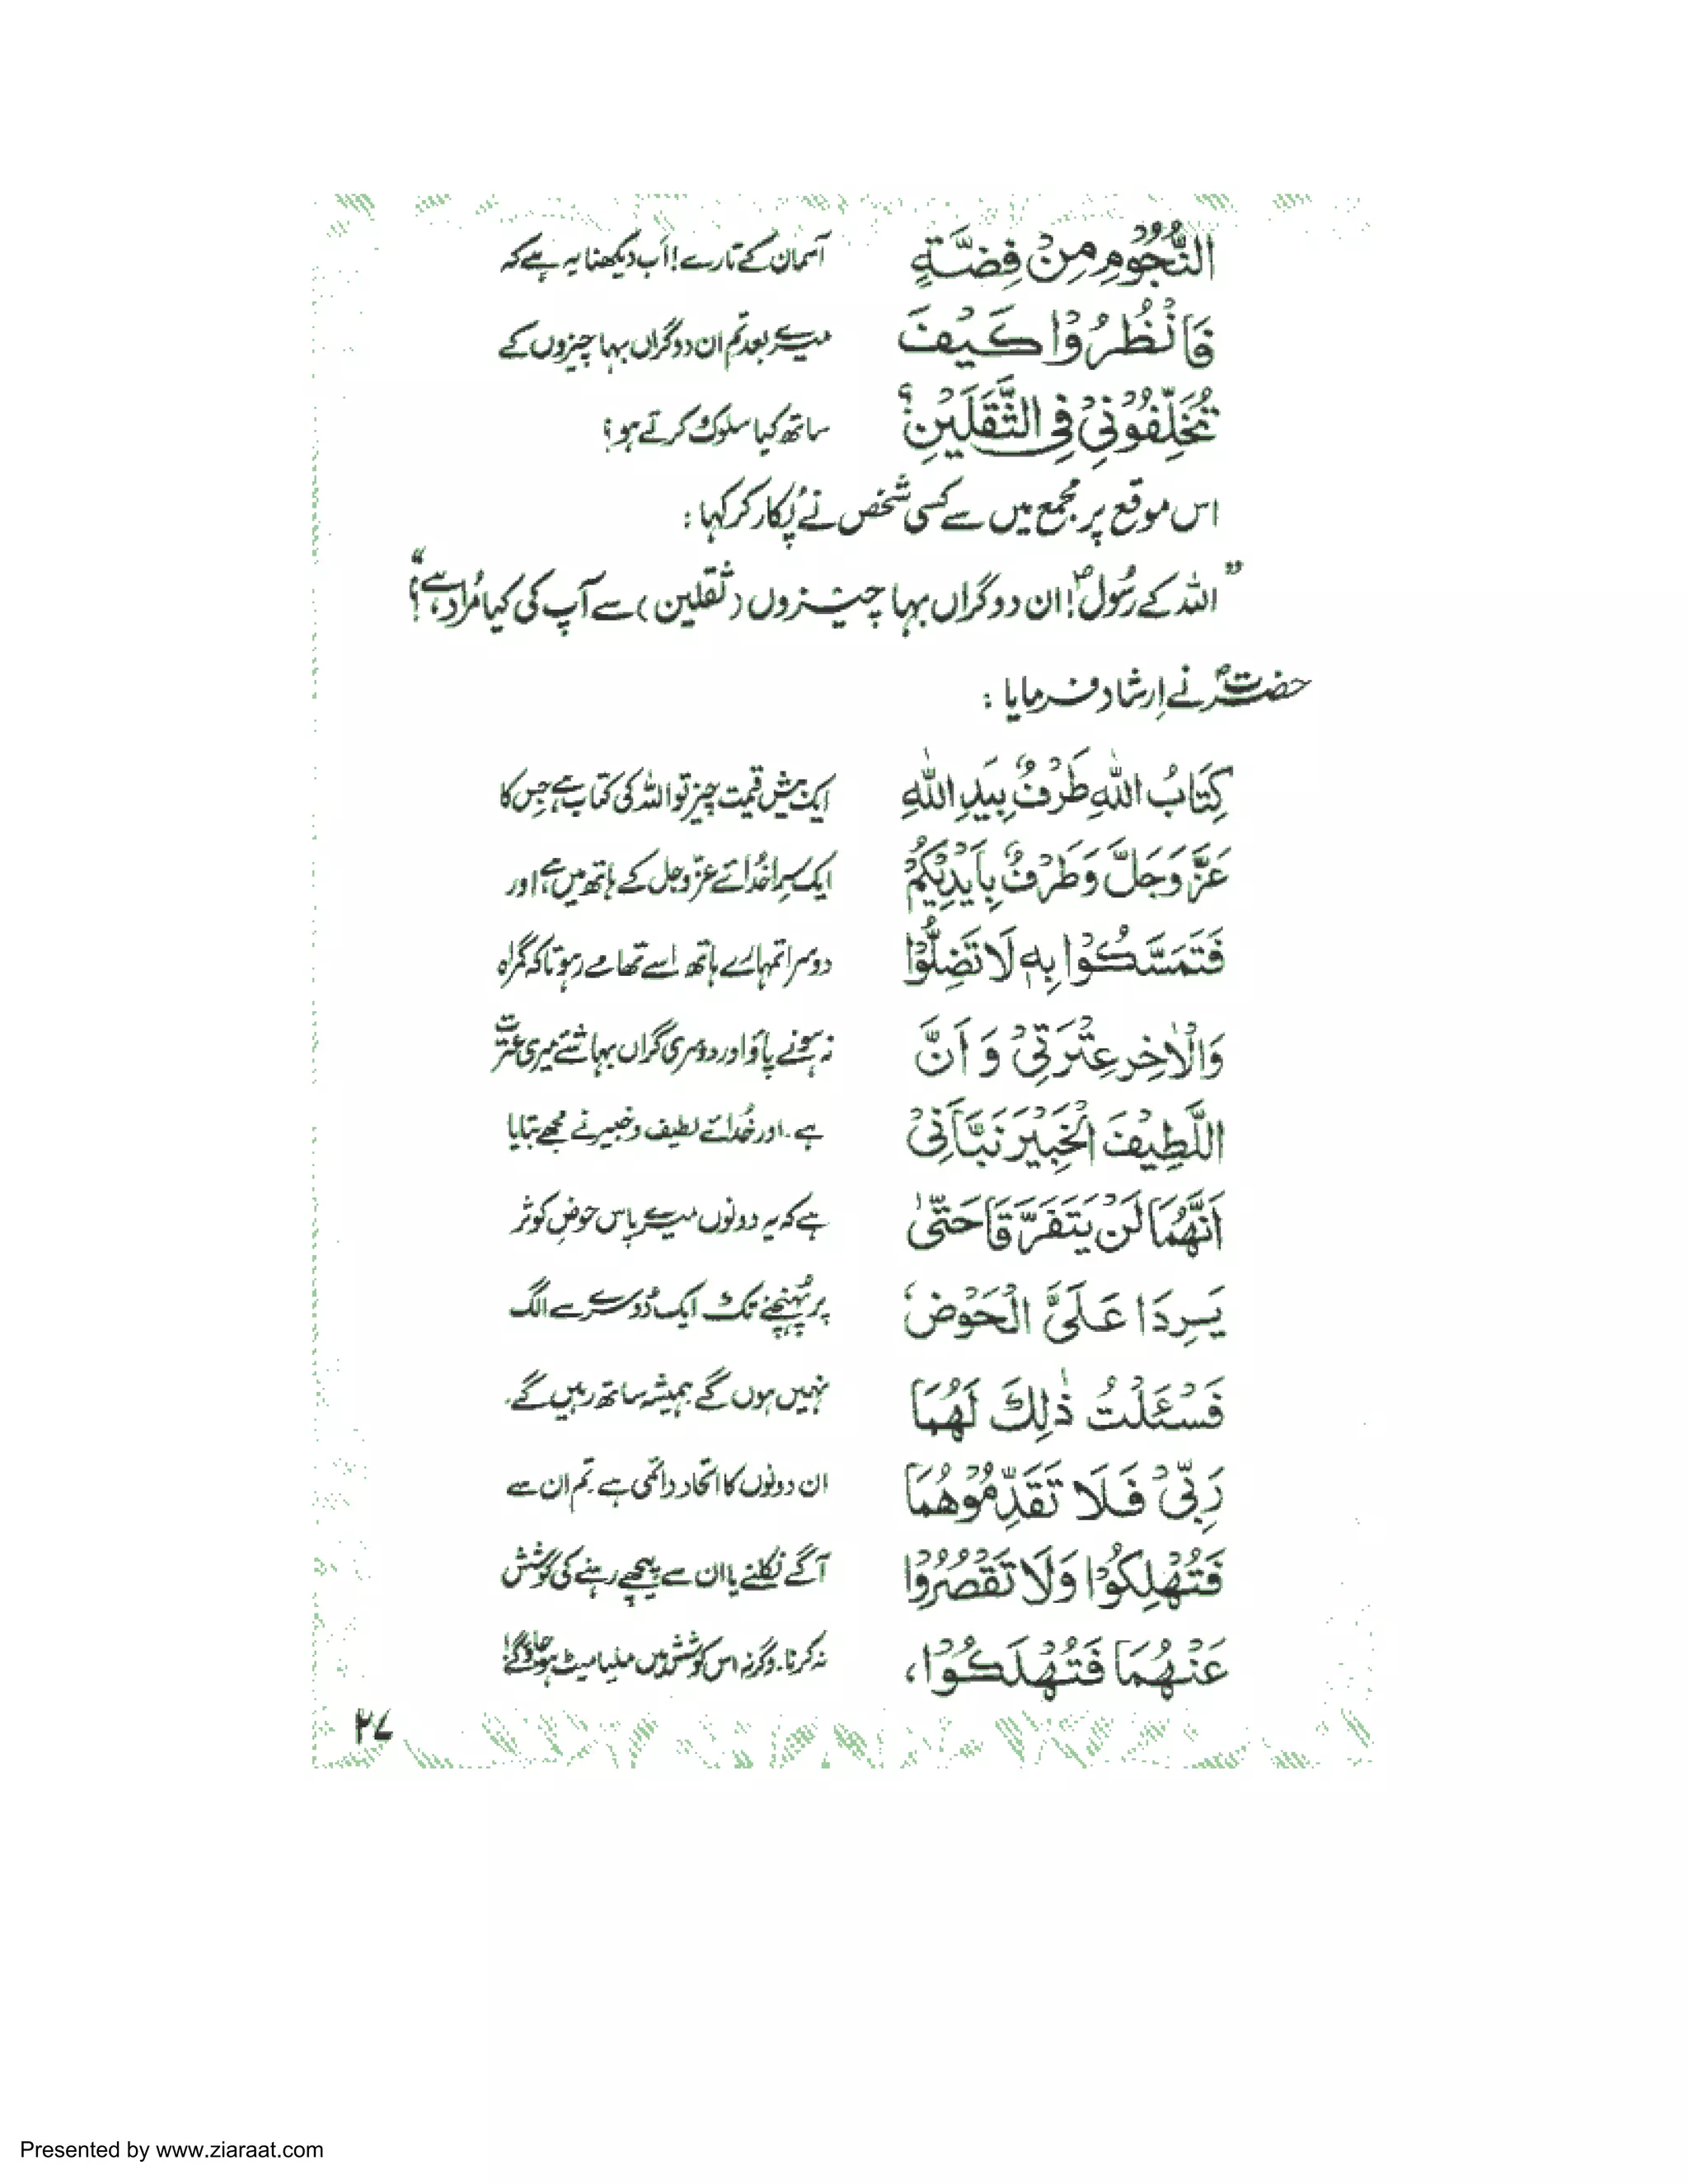 النُّجُوْمِ مِنْ فِضَّةٍ آسمان کے تارے! اَب دیکھنا یہ ہے کہ
فَانْظُرُوْا كَيْفَ میرے بعد تم ان دو گراں بہا چیزوں کے
تُخَلِّفُوْنِيْ فِي الثَّقَلَيْنِ؟ ساتھ کیا سلوک کرتے ہو؟
اس موقع پر مجمع میں سے کسی شخص نے پُکار کر کہا:
”اللہ کے رسُولؐ! ان دو گراں بہا چیزوں (ثقلین) سے آپ کی کیا مُراد ہے؟“
حضرتؐ نے اِرشاد فرمایا:
كِتَابُ اللهِ طَرْفٌ بِيَدِ اللهِ ایک بیش قیمت چیز تو اللہ کی کتاب ہے، جس کا
عَزَّ وَجَلَّ وَطَرْفٌ بِاَيْدِيْكُمْ ایک سِرا خُدائے عزّ وجل کے ہاتھ میں ہے، اور
فَتَمَسَّكُوْا بِهٖ لَا تَضِلُّوْا دوسرا تمہارے ہاتھ اسے تھامے رہو تاکہ گمراہ
وَالْاٰخِر عِتْرَتِيْ وَ اَنَّ نہ ہونے پاؤ اور دوسری گراں بہا شئے میری عترت
اللَّطِيْفَ الْخَبِيْرَ نَبَّاَنِيْ ہے۔ اور خُدائے لطیف و خبیر نے مجھے بتایا
اَنَّهُمَا لَنْ يَتَفَرَّقَا حَتّٰى ہے کہ یہ دونوں میرے پاس حوضِ کوثر
يَرِدَا عَلَىَّ الْحَوْضَ، پر پہُنچنے تک ایک دُوسرے سے الگ
فَسْئَلْتُ ذٰلِكَ لَهُمَا نہیں ہوں گے ہمیشہ ساتھ رہیں گے۔
رَبِّيْ فَلَا تَقَدِّمُوْهُمَا ان دونوں کا اتحاد دائمی ہے۔ تم ان سے
فَتُهْلِكُوْا وَلَا تَقْصُرُوْا آگے نکلنے یا ان سے پیچھے رہنے کی کوشش
عَنْهُمَا فَتُهْلَكُوْا، نہ کرنا۔ وگرنہ اس کوشش میں ملیامیٹ ہوجاؤگے!
۲۷
Presented by www.ziaraat.com